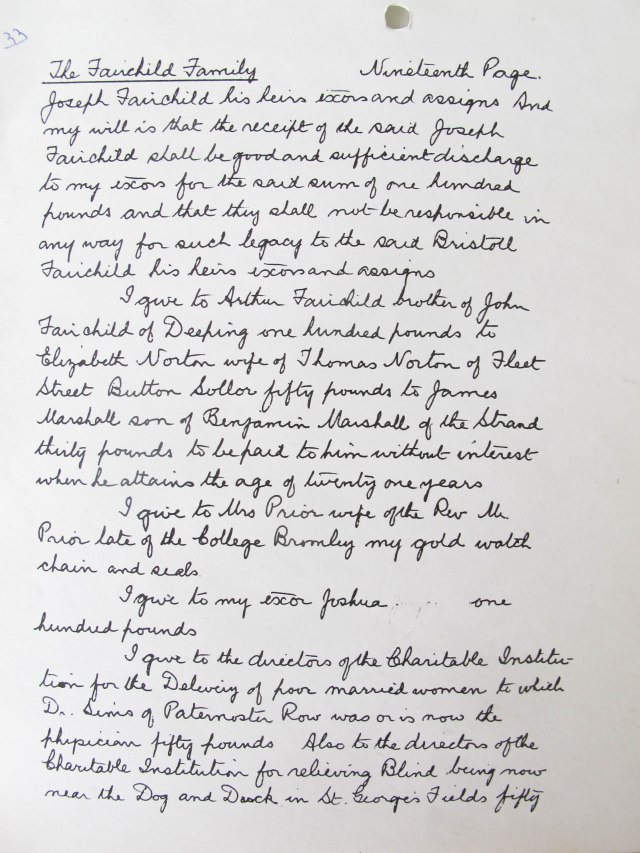 33
The Fairchild Family Nineteenth Page.
Joseph Fairchild his heirs exors and assigns And
my will is that the receipt of the said Joseph
Fairchild shall be good and sufficient discharge
to my exors for the said sum of one hundred
pounds and that they shall not be responsible in
any way for such legacy to the said Bristoll
Fairchild his heirs exors and assigns
I give to Arthur Fairchild brother of John
Fairchild of Deeping one hundred pounds to
Elizabeth Norton wife of Thomas Norton of Fleet
Street Button Sellor fifty pounds to James
Marshall son of Benjamin Marshall of the Strand
thirty pounds to be paid to him without interest
when he attains the age of twenty one years
I give to Mrs Prior wife of the Rev Mr
Prior late of the College Bromley my gold watch
chain and seals
I give to my exor Joshua one
hundred pounds
I give to the directors of the Charitable Institu-
tion for the Delivery of poor married women to which
Dr. Sims of Paternoster Row was or is now the
physician fifty pounds Also to the directors of the
Charitable Institution for relieving Blind being now
near the Dog and Duck in St. George's Fields fifty